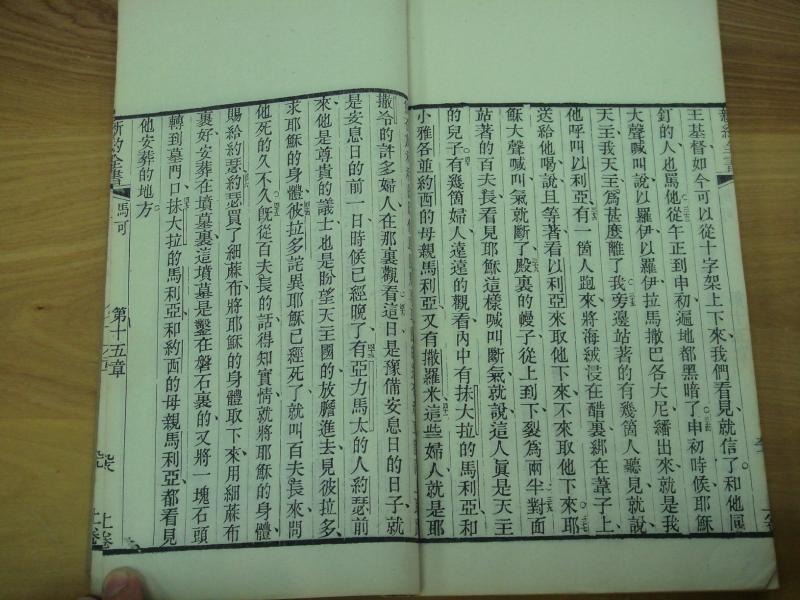 新約全書
王基督如今可以從十字架上下來我們看見就信了和他同
釘的人也罵他從午正到申初遍地都黑暗了申初時候耶穌
大聲喊叫說以羅伊以羅伊拉馬撒巴各大尼繙出來就是我
天主我天主爲甚麽離了我旁邊站著的有幾箇人聽見就說
他呼叫以利亞有一箇人跑來將海絨浸在醋裏綁在葦子上
送給他喝說且等著看以利亞來取他下來不來取他下來耶
穌大聲喊叫氣就斷了殿裏的幔子從上到下裂爲兩半對面
站著的百夫長看見耶穌這樣喊叫斷氣就說這人眞是天主
的兒子有幾箇婦人遠遠的觀看內中有抹大拉的馬利亞和
小雅各並約西的母親馬利亞又有撒羅米這些婦人就是耶
撒冷的許多婦人在那裏觀看這日是豫備安息日的日子就
是安息日的前一日時候已經晚了有亞力馬太的人約瑟前
來他是尊貴的議士也是盼望天主國的放膽進去見彼拉多
求耶穌的身體彼拉多詫異耶穌已經死了就叫百夫長來問
他死的久不久旣從百夫長的話得知實情就將耶穌的身體
賜給約瑟約瑟買了細蔴布將耶穌的身體取下來用細蔴布
裹好安葬在墳墓裏這墳墓是鑿在磐石裏的又將一塊石頭
轉到墓門口抹大拉的馬利亞和約西的母親馬利亞都看見
他安葬的地方
新約全書
馬可
第十五章